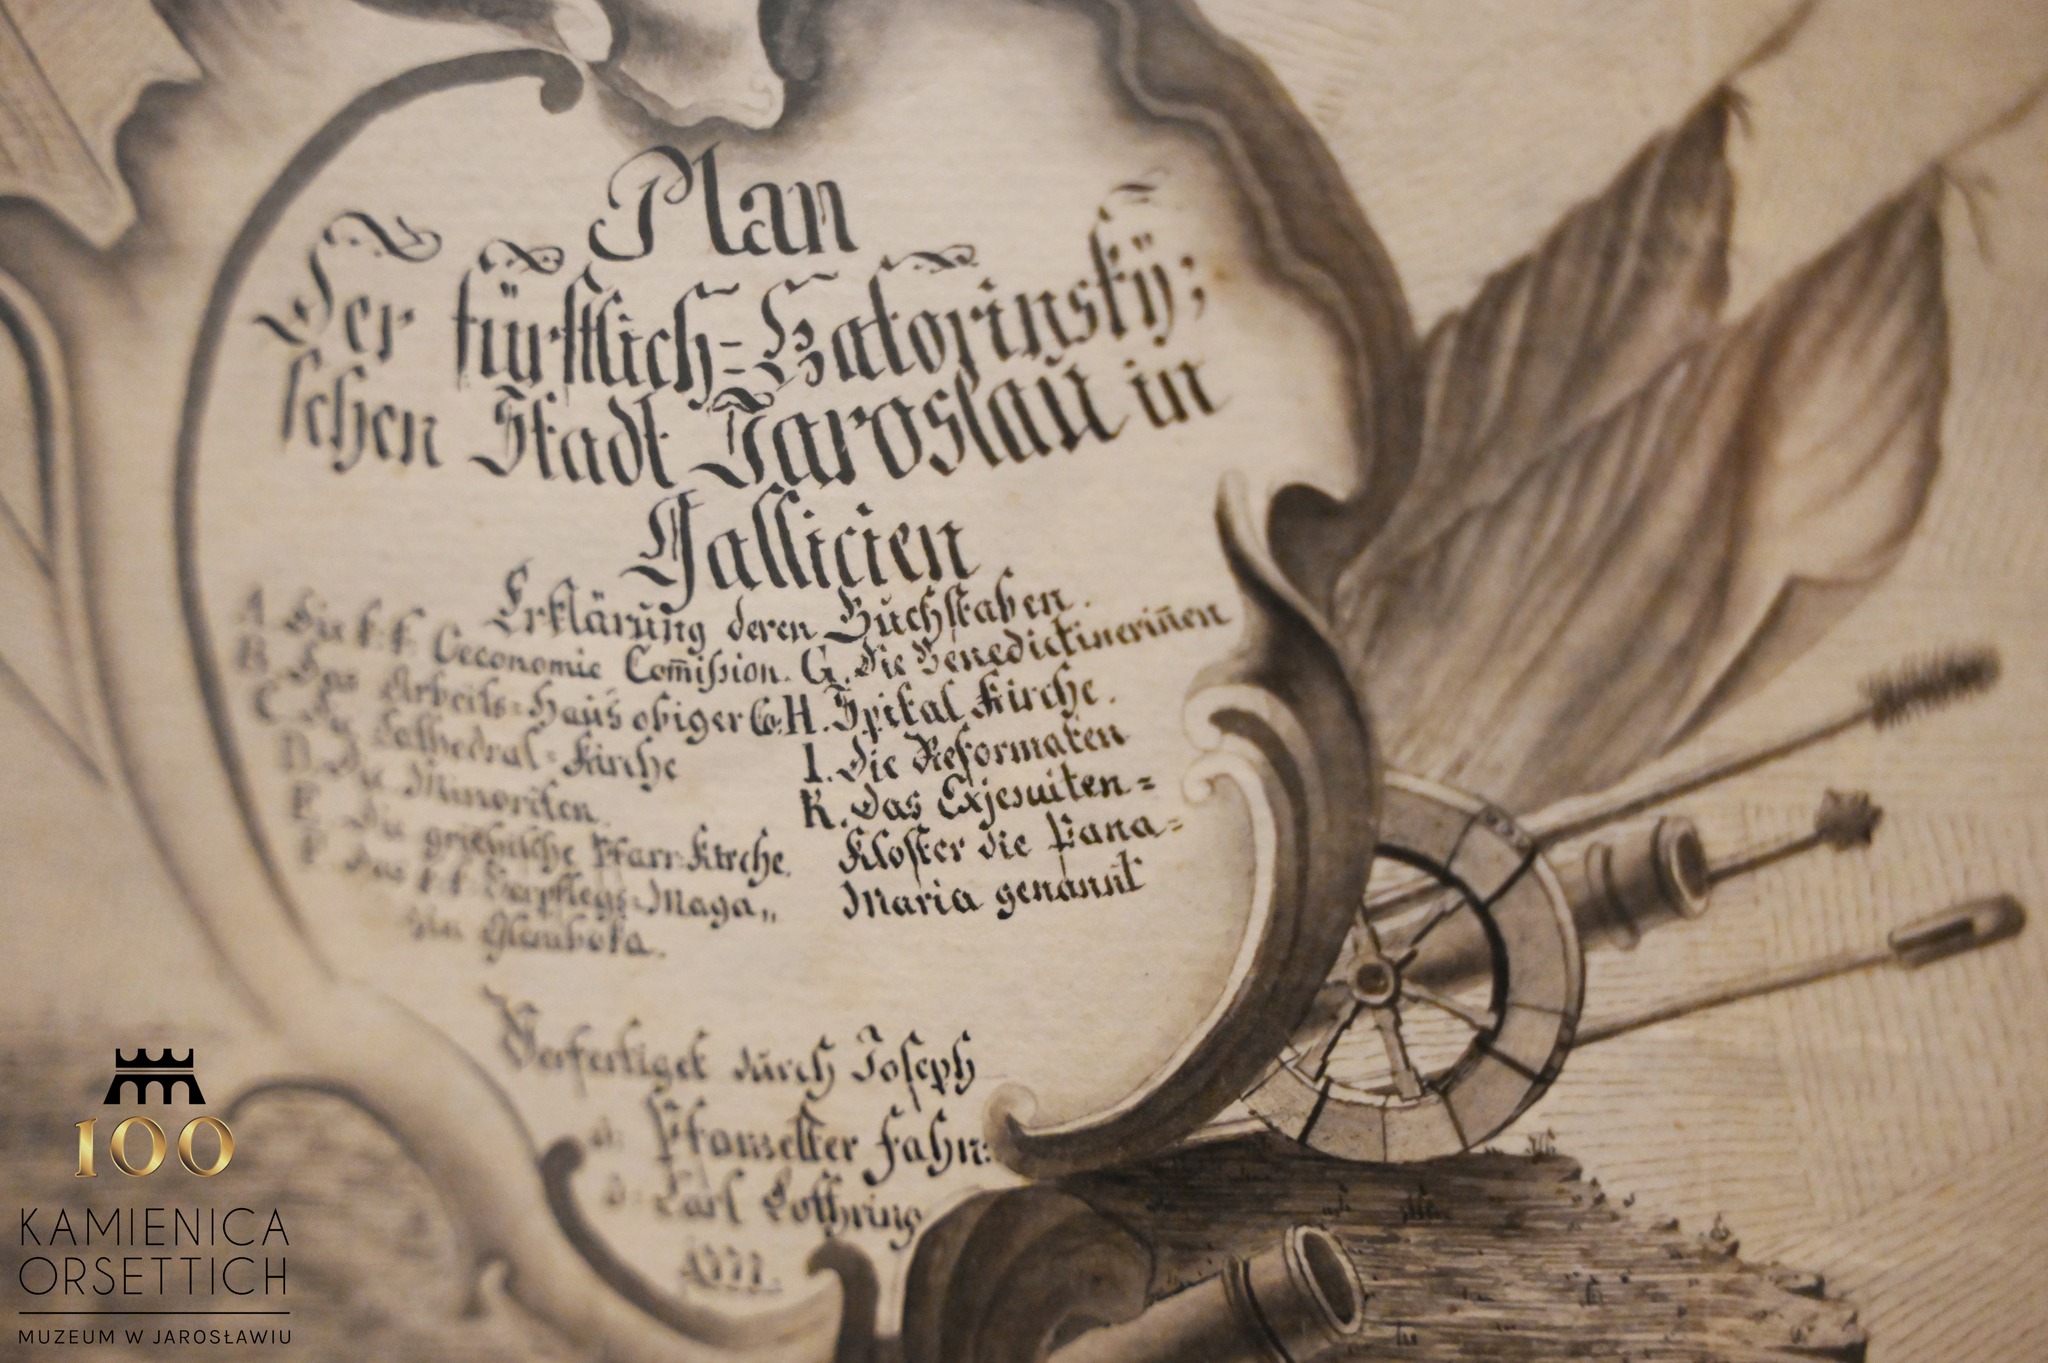 Plan
Der fürstlich-Zatorinskÿ;
schen Stadt Jaroslau in
Gallicien
Erklärung deren Buchstaben.
A. Die k. k. Oeconomie Com̅ission.
B. Das Arbeits-Haus obiger Co.
C. Die Cathedral-Kirche
D. Die Minoriten.
E. Die griechische Pfarr-Kirche.
F. Das k. k. Verpflegs-Maga„
zin Glemboka.
G. Die Benedictinerin̅en
H. Spital Kirche.
I. Die Reformaten
K. Das Exjesuiten=
Kloster die Pana=
Maria genannt
Verfertiget durch Joseph
Fahn:
Carl Lothring
100
KAMIENICA
ORSETTICH
MUZEUM W JAROSŁAWIU